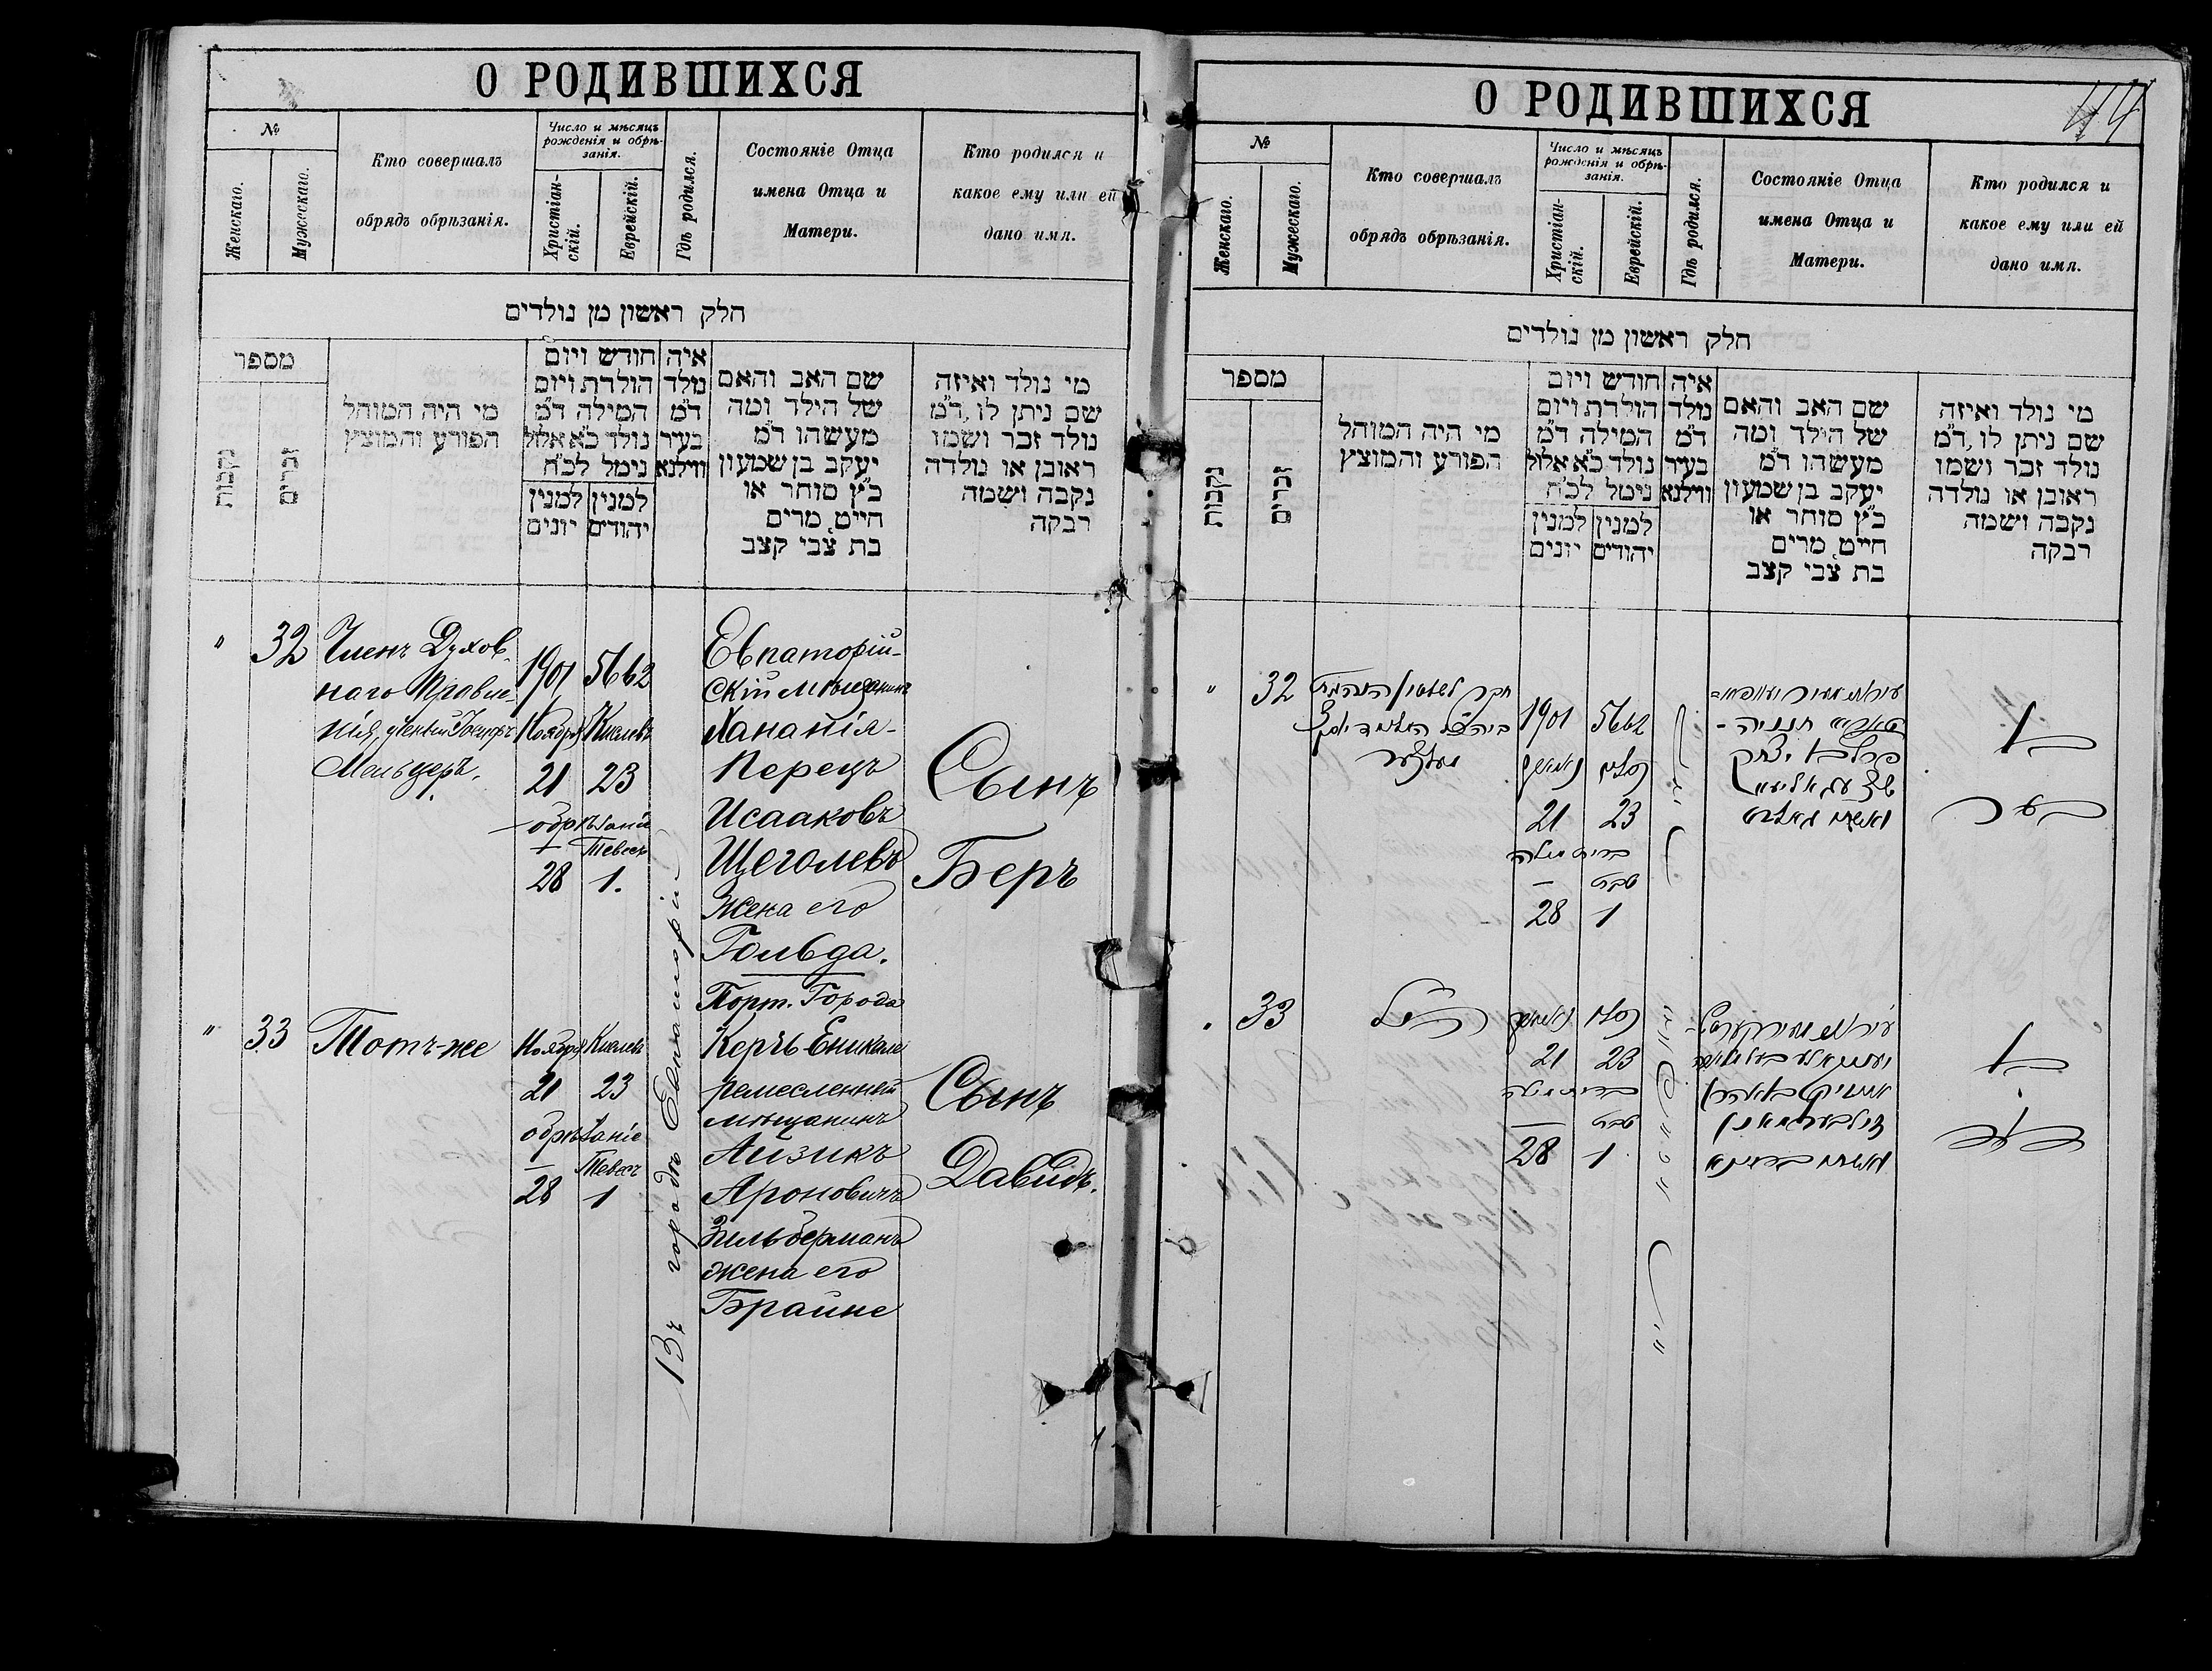 О РОДИВШИХСЯ
№
Женскаго.
Мужескаго.
Кто совершалъ
обрядъ обрѣзанія.
Число и мѣсяцъ
рожденія и обрѣ-
занія.
Христіан-
скій.
Еврейскій.
Гдѣ родился.
Состояніе Отца
имена Отца и
Матери.
Кто родился и
какое ему или ей
дано имя.
חלק ראשון מן נולדים
מספר
נקבות
זכרים
מי היה המוהל
הפורע והמוצץ
חודש ויום
הולדת ויום
המילה ד״מ
נולד כ״א אלול
נימל לכ״ח
למנין יונים
למנין יהודים
איה
נולד
ד״מ
בעיר
ווילנא
שם האב והאם
של הילד ומה
מעשהו ד״מ
יעקב בן שמעון
כ״ץ סוחר או
חייט, מרים
בת צבי קצב
מי נולד ואיזה
שם ניתן לו, ד״מ
נולד זכר ושמו
ראובן או נולדה
נקבה ושמה
רבקה
" 32
Членъ Духов-
наго Правле-
нія,
Мельцеръ.
1901 5662
Ноября Кислевъ
21 23
обрѣзаніе
— Тевесъ
28 1.
Евпаторій-
скій мѣщанинъ
Хананія-
Перецъ
Исааковъ
Щеголевъ
жена его
Гольда.
Сынъ
Беръ
Въ городѣ Евпаторіи
" 33
Тотъ-же
Ноября Кислевъ
21 23
обрѣзаніе
— Тевесъ
28 1
Порт. Города
Керчь-Еникале
ремесленный
мѣщанинъ
Айзикъ
Ароновичъ
Зильберманъ
жена его
Брайне
Сынъ
Давидъ.
О РОДИВШИХСЯ
44
№
Женскаго.
Мужескаго.
Кто совершалъ
обрядъ обрѣзанія.
Число и мѣсяцъ
рожденія и обрѣ-
занія.
Христіан-
скій.
Еврейскій.
Гдѣ родился.
Состояніе Отца
имена Отца и
Матери.
Кто родился и
какое ему или ей
дано имя.
חלק ראשון מן נולדים
מספר
נקבות
זכרים
מי היה המוהל
הפורע והמוצץ
חודש ויום
הולדת ויום
המילה ד״מ
נולד כ״א אלול
נימל לכ״ח
למנין יונים
למנין יהודים
איה
נולד
ד״מ
בעיר
ווילנא
שם האב והאם
של הילד ומה
מעשהו ד״מ
יעקב בן שמעון
כ״ץ סוחר או
חייט, מרים
בת צבי קצב
מי נולד ואיזה
שם ניתן לו, ד״מ
נולד זכר ושמו
ראובן או נולדה
נקבה ושמה
רבקה
" 32
1901 5662
כסלו
21 23
ברית מילה
— טבת
28 1
חנניה -
יצחק
בן
בער
33
כסלו
21 23
ברית מילה
— טבת
28 1
זילבערמאן
בן